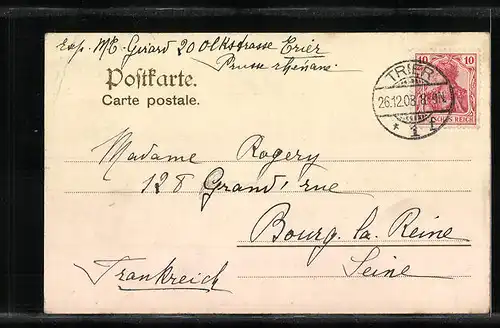 Exp. ME. Girard 20 Olkstrasse Trier
Prusse rhénane
Postkarte.
Carte postale.
10 10
DEUTSCHES REICH
TRIER
26.12.08. 8-9N.
* 1 f
Madame Rogery
128 Grand' rue
Bourg. la. Reine
Seine
Frankreich